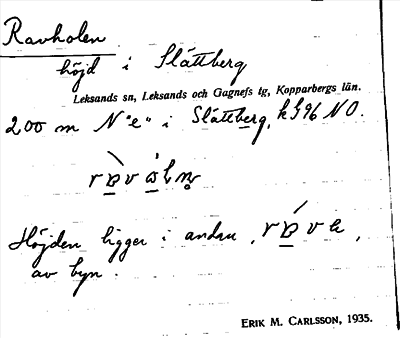 Ravholen
höjd i Slättberg
Leksands sn, Leksands och Gagnefs tg, Kopparbergs län.
200 m N "e" i Slättberg, NO.
Höjden ligger i andra
av byn.
ERIK M. CARLSSON, 1935.